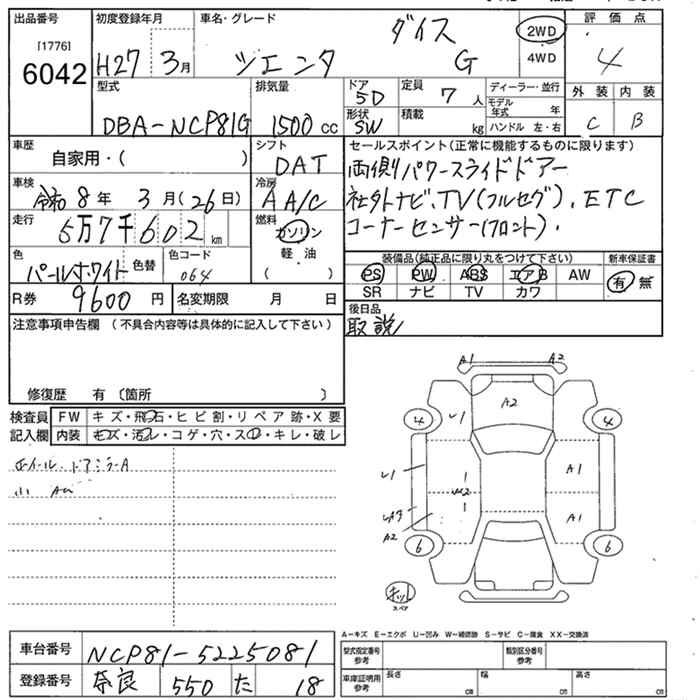 出品番号 初度登録年月 車名・グレード 評価点
[1776] ダイス 2WD
6042 H27 3月 シエンタ G 4WD 4
型式 排気量 ドア 5D 定員 7 人 ディーラー・並行 外装 内装
DBA-NCP81G 1500 cc 形状 SW 積載 kg モデル年式 年 C B
ハンドル 左・右
車歴 自家用・( ) シフト DAT セールスポイント(正常に機能するものに限ります)
両側パワースライドドアー
車検 令和8年 3月(26日) 冷房 A A/C 社外ナビ、TV(フルセグ)、ETC
走行 5万7千602 km 燃料 ガソリン コーナーセンサー(フロント).
軽油
( )
色 パールホワイト 色替 色コード 064 装備品(純正品に限り丸をつけて下さい) 新車保証書
PS PW ABS エアB AW 有・無
R券 9600 円 名変期限 月 日 SR ナビ TV カワ
注意事項申告欄 (不具合内容等は具体的に記入して下さい) 後日品
取説
修復歴 有 (箇所 )
検査員 FW キズ・飛石・ヒビ割・リペア跡・X要
記入欄 内装 キズ・汚レ・コゲ・穴・スレ・キレ・破レ
ホイール、ドアミラーA
小
A1 A2
A2
4 U1 4
U1 A1
A2 A1
6 6
キット
スペア
A-キズ E-エクボ U-凹み W-補修跡 S-サビ C-腐食 XX-交換済
車台番号 NCP81-5225081 型式指定番号 参考 類別区分番号 参考
登録番号 奈良 550 た 18 車庫証明用 参考 長さ cm 幅 cm 高さ cm